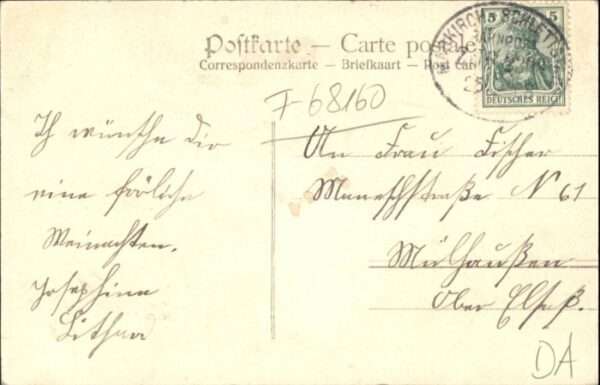 Postkarte — Carte postale
Correspondenzkarte — Briefkaart — Post card
5 5
DEUTSCHES REICH
MARKIRCH SCHLETTST
BAHNPOST
F 68160
Ich wünsche Dir
eine fröliche
Weinachten.
Josephine
An Frau Fischer
Straße N 61
Mülhaußen
Ober Elsaß.
DA